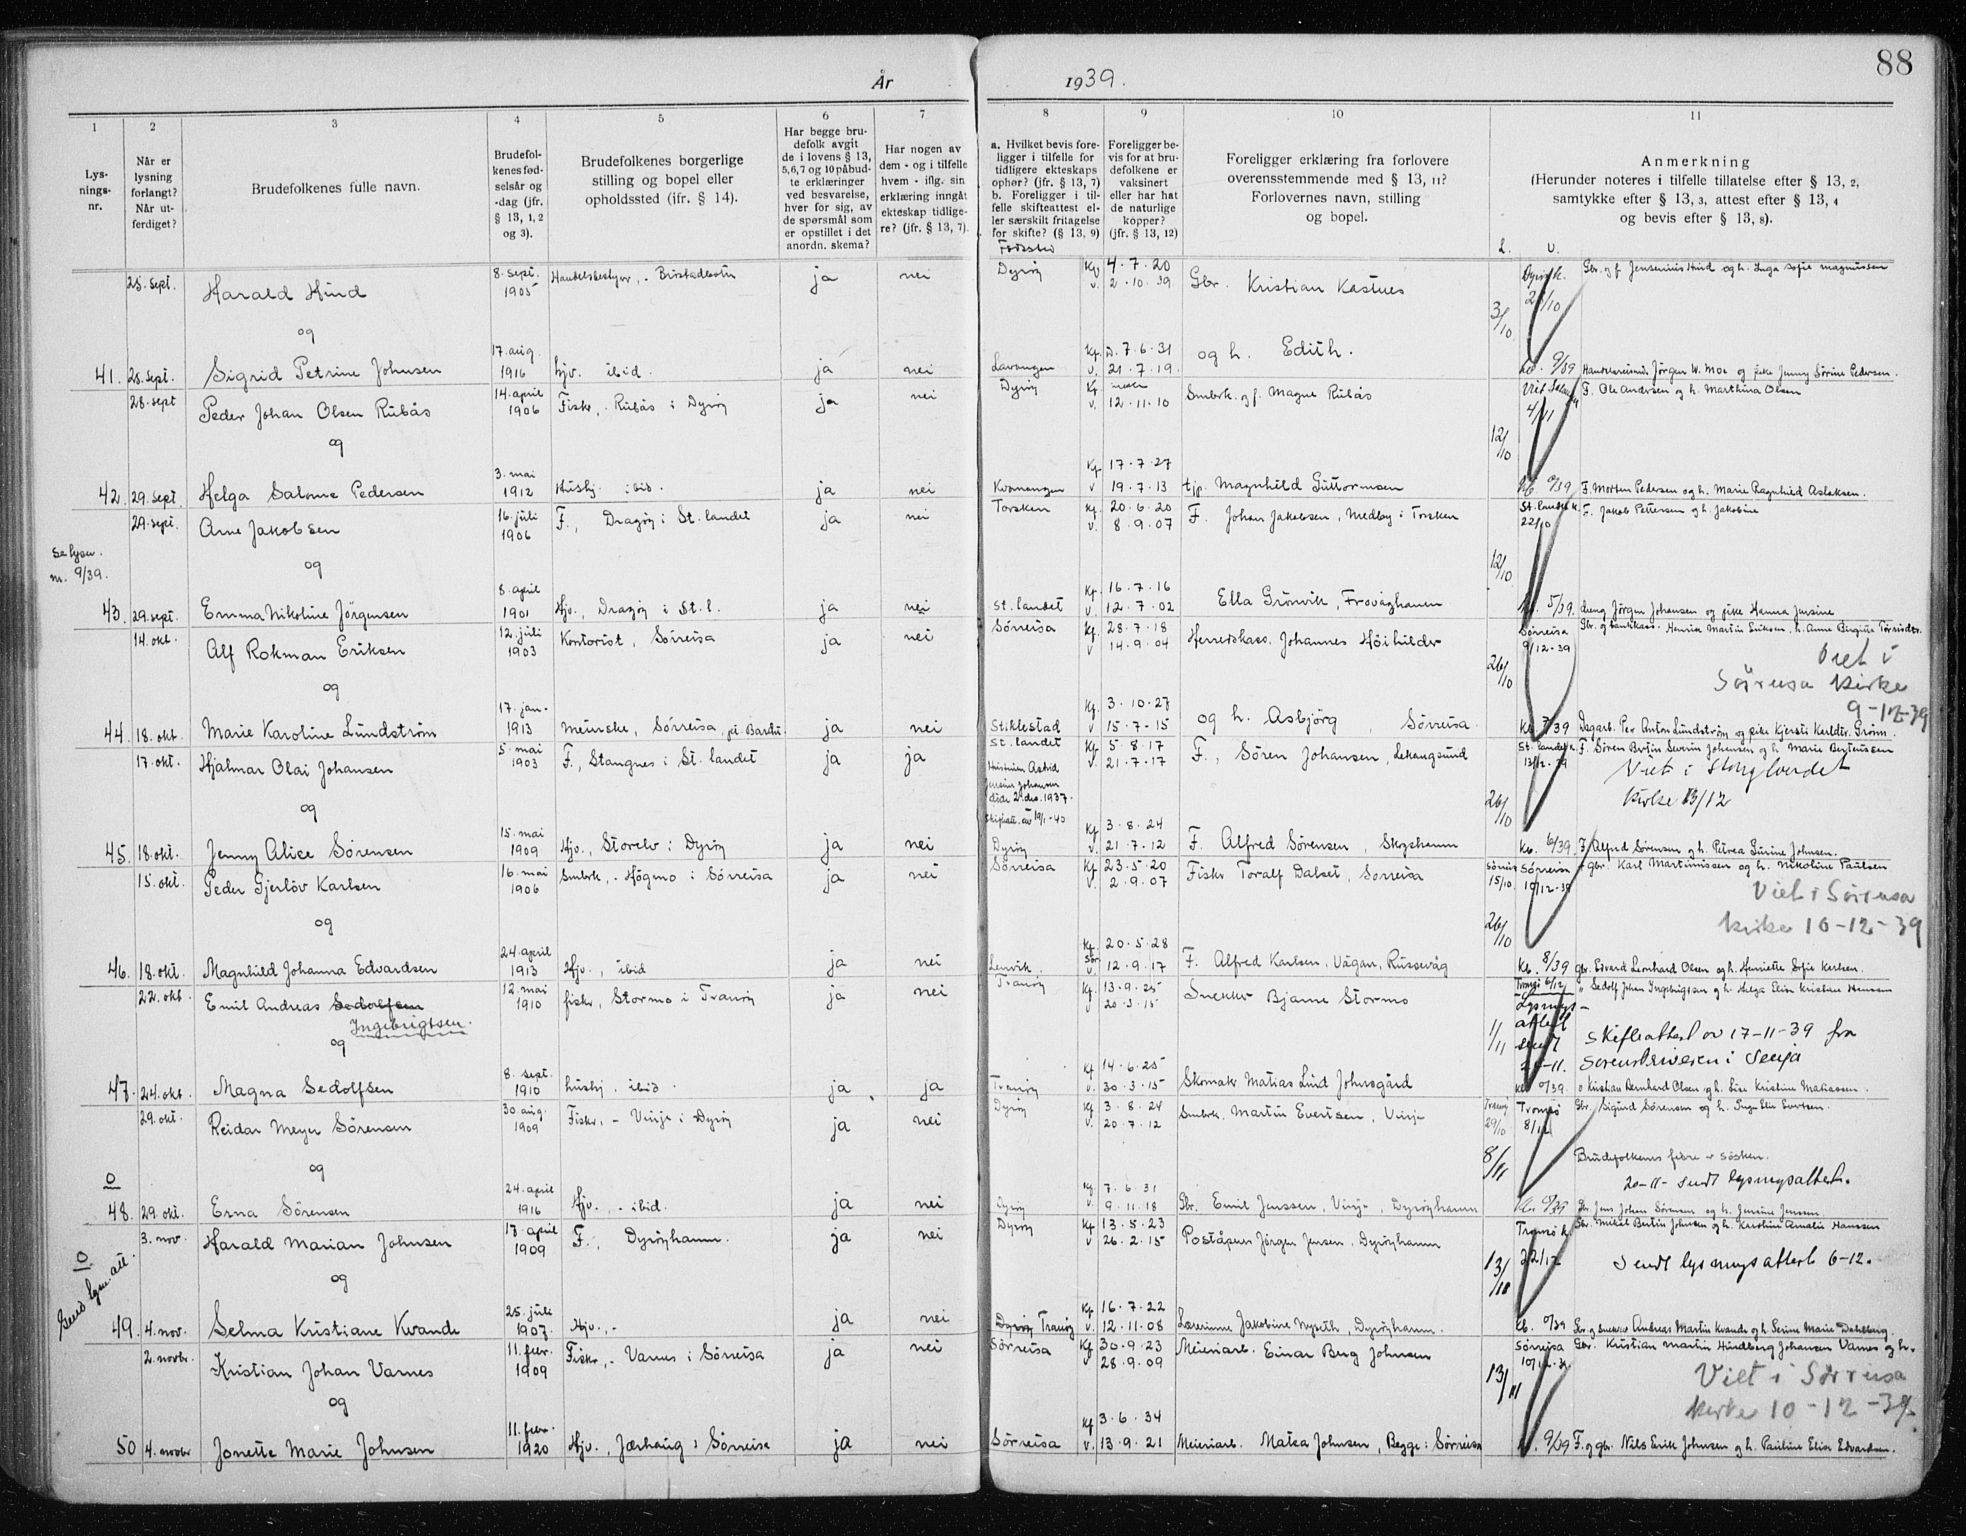 88
År 1939.
1 2 3 4 5 6 7 8 9 10 11
Lys-
nings-
nr.
Når er
lysning
forlangt?
Når ut-
ferdiget?
Brudefolkenes fulle navn.
Brudefol-
kenes fød-
selsår og
-dag (jfr.
§ 13, 1, 2
og 3).
Brudefolkenes borgerlige
stilling og bopel eller
opholdssted (jfr. § 14).
Har begge bru-
defolk avgit
de i lovens § 13,
5, 6, 7 og 10 påbud-
te erklæringer
ved besvarelse,
hver for sig, av
de spørsmål som
er opstillet i det
anordn. skema?
Har nogen av
dem - og i tilfelle
hvem - iflg. sin
erklæring inngåt
ekteskap tidlige-
re? (jfr. § 13, 7).
a. Hvilket bevis fore-
ligger i tilfelle for
tidligere ekteskaps
ophør? (jfr. § 13, 7)
b. Foreligger i til-
felle skifteattest el-
ler særskilt fritagelse
for skifte? (§ 13, 9)
Fødested
Foreligger be-
vis for at bru-
defolkene er
vaksinert
eller har hat
de naturlige
kopper?
(jfr. § 13, 12)
Foreligger erklæring fra forlovere
overensstemmende med § 13, 11?
Forlovernes navn, stilling
og bopel.
Anmerkning
(Herunder noteres i tilfelle tillatelse efter § 13, 2,
samtykke efter § 13, 3, attest efter § 13, 4
og bevis efter § 13, 8).
L. V.
25. sept. Harald Hind 8. sept. 1905 Handelsbestyrer, - Brøstadbotn ja nei Dyrøy Kf 4.7.20 v. 2.10.39 Gbr. Kristian Kastnes 3/10 Dyrøy k. Gbr. og f. Jensenius Hind og h. Inga Sofie Magnussen
og
41. 25. sept. Sigrid Petrine Johnsen 17. aug. 1916 hjv. ibid. ja nei Lavangen Kf. 7.6.31 v. 21.7.19. og h. Edith. 9/39 Jørgen W. Moe og pike Jenny Sørine Pedersen.
28. sept Peder Johan Olsen Rubås 14. april 1906 Fiskr, - Rubås i Dyrøy ja nei Dyrøy Kf v. 12.11.10 Smbrk. og f. Magne Rubås 12/10 4/11 F. Ole Andersen og h. Marthina Olsen
og
42. 29. sept Helga Salome Pedersen 3. mai 1912 Hushj. ibid. ja nei Kvænangen Kf 17.7.27 v 19.7.13 tjp. Magnhild Guttormsen F. Morten Pedersen og h. Marie Ragnhild Aslaksen.
29. sept. Arne Jakobsen 16. juli 1906 F., Dragøy i St. landet ja nei Torsken Kf. 20.6.20 v. 8.9.07 F. Johan Jakobsen, Medby i Torsken 12/10 St. landet k. 22/10 F. Jakob Pettersen og h. Jakobine
Se lysn.
nr. 9/39.
og
43. 29. sept. Emma Nikoline Jørgensen 8. april 1901 Hjv., Dragøy i St. l. ja nei St. landet Kf. 16.7.16 v. 12.7.02 Ella Grønvik, Frovåghamn 5/39. Jørgen Johansen og pike Hanna Jensine
14. okt. Alf Rokman Eriksen 12. juli 1903 Kontorist, Sørreisa ja nei Sørreisa Kf. 28.7.18 v 14.9.04 Herredskass. Johannes Høihilder 26/10 Sørreisa 9/12-39 Gbr. og bankkass. Henrik Martin Eriksen, h. Anne Birgitte
Viet i
Sørreisa kirke
9-12-39
og
44. 18. okt. Marie Karoline Lundstrøm 17. jan. 1913 meierske, Sørreisa, ja nei Stiklestad Kf. 3.10.27 v 15.7.15 og h. Asbjørg Sørreisa. Kb. 7/39 Dagarb. Per Anton Lundstrøm og pike Kjersti
17. okt. Hjalmar Olai Johansen 5. mai 1903 F., Stangnes i St. landet ja ja St. landet Kf 5.8.17 v. 21.7.17 F., Søren Johansen, Lekangsund 26/10 St. landet k. 13/12-39 F. Søren Bertin Severin Johansen og h. Marie Berteussen
Hustruen Astrid
Jensine Johansen
døde 2. des. 1937.
Skifteatt. av 19/1-40
Viet i Stonglandet
kirke 13/12
og
45. 18. okt. Jenny Alice Sørensen 15. mai 1909 Hjv., Storelv i Dyrøy ja nei Dyrøy Kf 3.8.24 v. 21.7.12 F. Alfred Sørensen, Skogshamn Kb. 6/39. F. Alfred Sørensen og h. Petrea Gurine Johnsen.
15. okt. Peder Gjerløv Karlsen 16. mai 1906 Smbrk, - Høgmo i Sørreisa ja nei Sørreisa Kf 23.5.20 v. 2.9.07 Fiskr Toralf Dalset, Sørreisa 15/10 26/10 Sørreisa 10/12-39 gbr. Karl Martinussen og h. Nikoline Paulsen
Viet i Sørreisa
kirke 10-12-39
og
46. 18. okt. Magnhild Johanna Edvardsen 24. april 1913 Hjv., ibid ja nei Lenvik. Kf. 20.5.28 v. 12.9.17 F. Alfred Karlsen, Vågan, Russevåg Kb. 8/39 gbr. Edvard Leonhard Olsen og h. Henriette Sofie Karlsen.
22. okt. Emil Andreas Sedolfsen Ingebrigtsen. 12. mai 1910 fiskr, Stormo i Tranøy ja nei Tranøy Kf. 13.9.25 v. 20.3.15 Snekker Bjarne Stormo 1/11 Tromsø 6/12 Sedolf Johan Ingebrigtsen og h. Helga Elise Kristine Hanssen
Lysnings-
attest
sendt
20-11.
Skifteattest av 17-11-39 fra
Sorenskriveren i Senja
og
47. 24. okt. Magna Sedolfsen 8. sept. 1910 hushj. ibid. ja ja Tranøy Kf 14.6.25 v. 30.3.15 Skomakr Matias Lind Johnsgård Kristian Bernhard Olsen og h. Lise Kristine Matiassen.
29. okt. Reidar Meyer Sørensen 30. aug. 1909 Fiskr, - Vinje i Dyrøy ja nei Dyrøy Kf 3.8.24 v. 20.7.12 Smbrk. Martin Evertsen, Vinje 29/10 8/11 Tromsø 8/12 Gbr. Sigurd Sørensen og h. Inga Elin Evertsen.
Brudefolkenes fedre er søsken.
20-11- sendt lysningsattest.
og
0
48. 29. okt. Erna Sørensen 24. april 1916 Hjv., - ibid. ja nei Dyrøy Kf 7.6.31 v. 9.11.18 Gbr. Emil Jenssen, Vinje, Dyrøyhamn Gbr. Jens Johan Sørensen og h. Jensine Jenssen.
3. nov. Harald Marian Johnsen 17. april 1909 F., Dyrøyhamn. ja nei Dyrøy Kf 13.5.23 v 26.2.15 Poståpner Jørgen Jensen, Dyrøyhamn 13/ Tromsø k. 22/12 Gbr. Mikal Bertin Johnsen og h. Karoline Amalie Hanssen
Sendt lysningsattest 6-12.
0
Send lysn. att.
og
49. 4. nov. Selma Kristiane Kvande 25. juli 1907. Hjv., - ja nei Dyrøy Tranøy Kf 16.7.22 v. 12.11.08 Lærerinne Jakobine Nyseth, Dyrøyhamn. Kb. Gbr og snekker Andreas Martin Kvande og h. Serine Marie Dahlberg.
2. novbr. Kristian Johan Varnes 11. febr. 1909 Fiskr, - Varnes i Sørreisa ja nei Sørreisa Kf 30.9.23 v 28.9.09 Meieriarb. Einar Berg Johnsen 13/11 Sørreisa 10/12-39 Gbr. Kristian Martin Hindberg Johansen Varnes og h.
Viet i Sørreisa
kirke 10-12-39.
og
50 4. novbr Jonette Marie Johnsen 11. febr. 1920 Hjv., Jærhaug i Sørreisa ja nei Sørreisa Kf 3.6.34 v. 13.9.21 Meieriarb. Matea Johnsen, Begge i Sørreisa 9/39 F. og gbr. Nils Erik Johnsen og h. Pauline Elise Edvardsen.